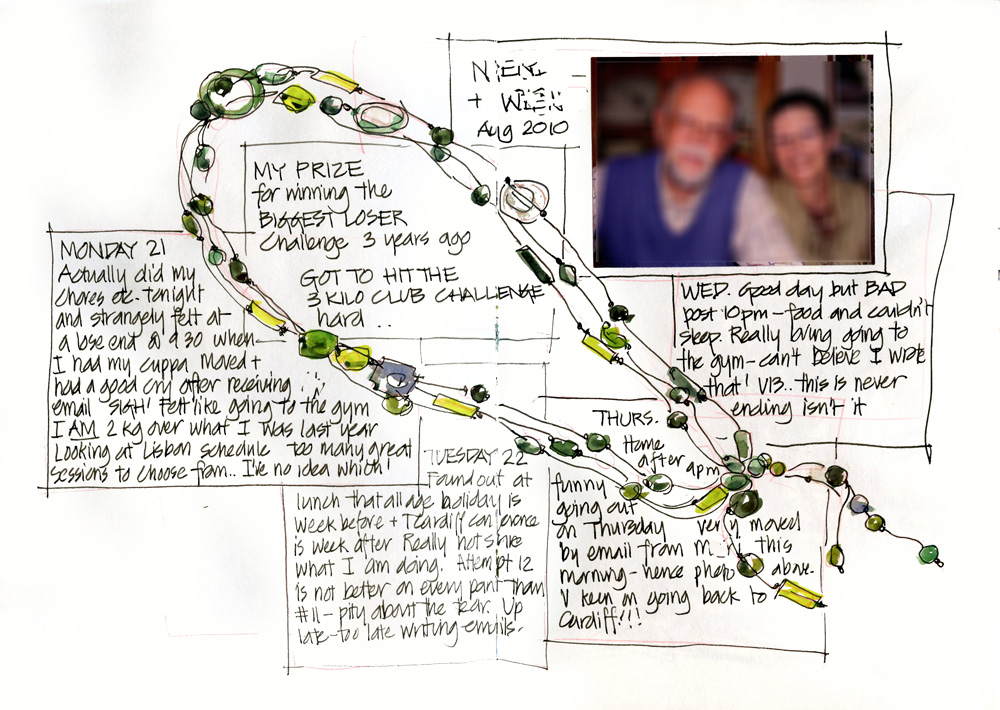 Aug 2010
MY PRIZE
for winning the
BIGGEST LOSER
Challenge 3 years ago
GOT TO HIT THE
3 KILO CLUB CHALLENGE
hard ..
MONDAY 21
Actually did my
chores etc. tonight
and strangely felt at
a lose end @ 9 30 when
I had my cuppa. Moved +
had a good cry after receiving
email SIGH! Felt like going to the gym
I AM 2 kg over what I was last year
Looking at Lisbon schedule too many great
sessions to choose from.. I've no idea which!
TUESDAY 22
Found out at
lunch that all age holiday is
week before + Cardiff conference
is week after Really not sure
what I am doing. Attempt 12
is not better on every point than
#11 - pity about the tear. Up
late - too late writing emails.
WED. Good day but BAD
post 10pm - food and couldn't
sleep. Really loving going to
the gym - can't believe I wrote
that! V13.. this is never
ending isn't it
THURS.
Home
after 9pm
funny
going out
on Thursday very moved
by email from this
morning - hence photo above.
V keen on going back to
Cardiff!!!